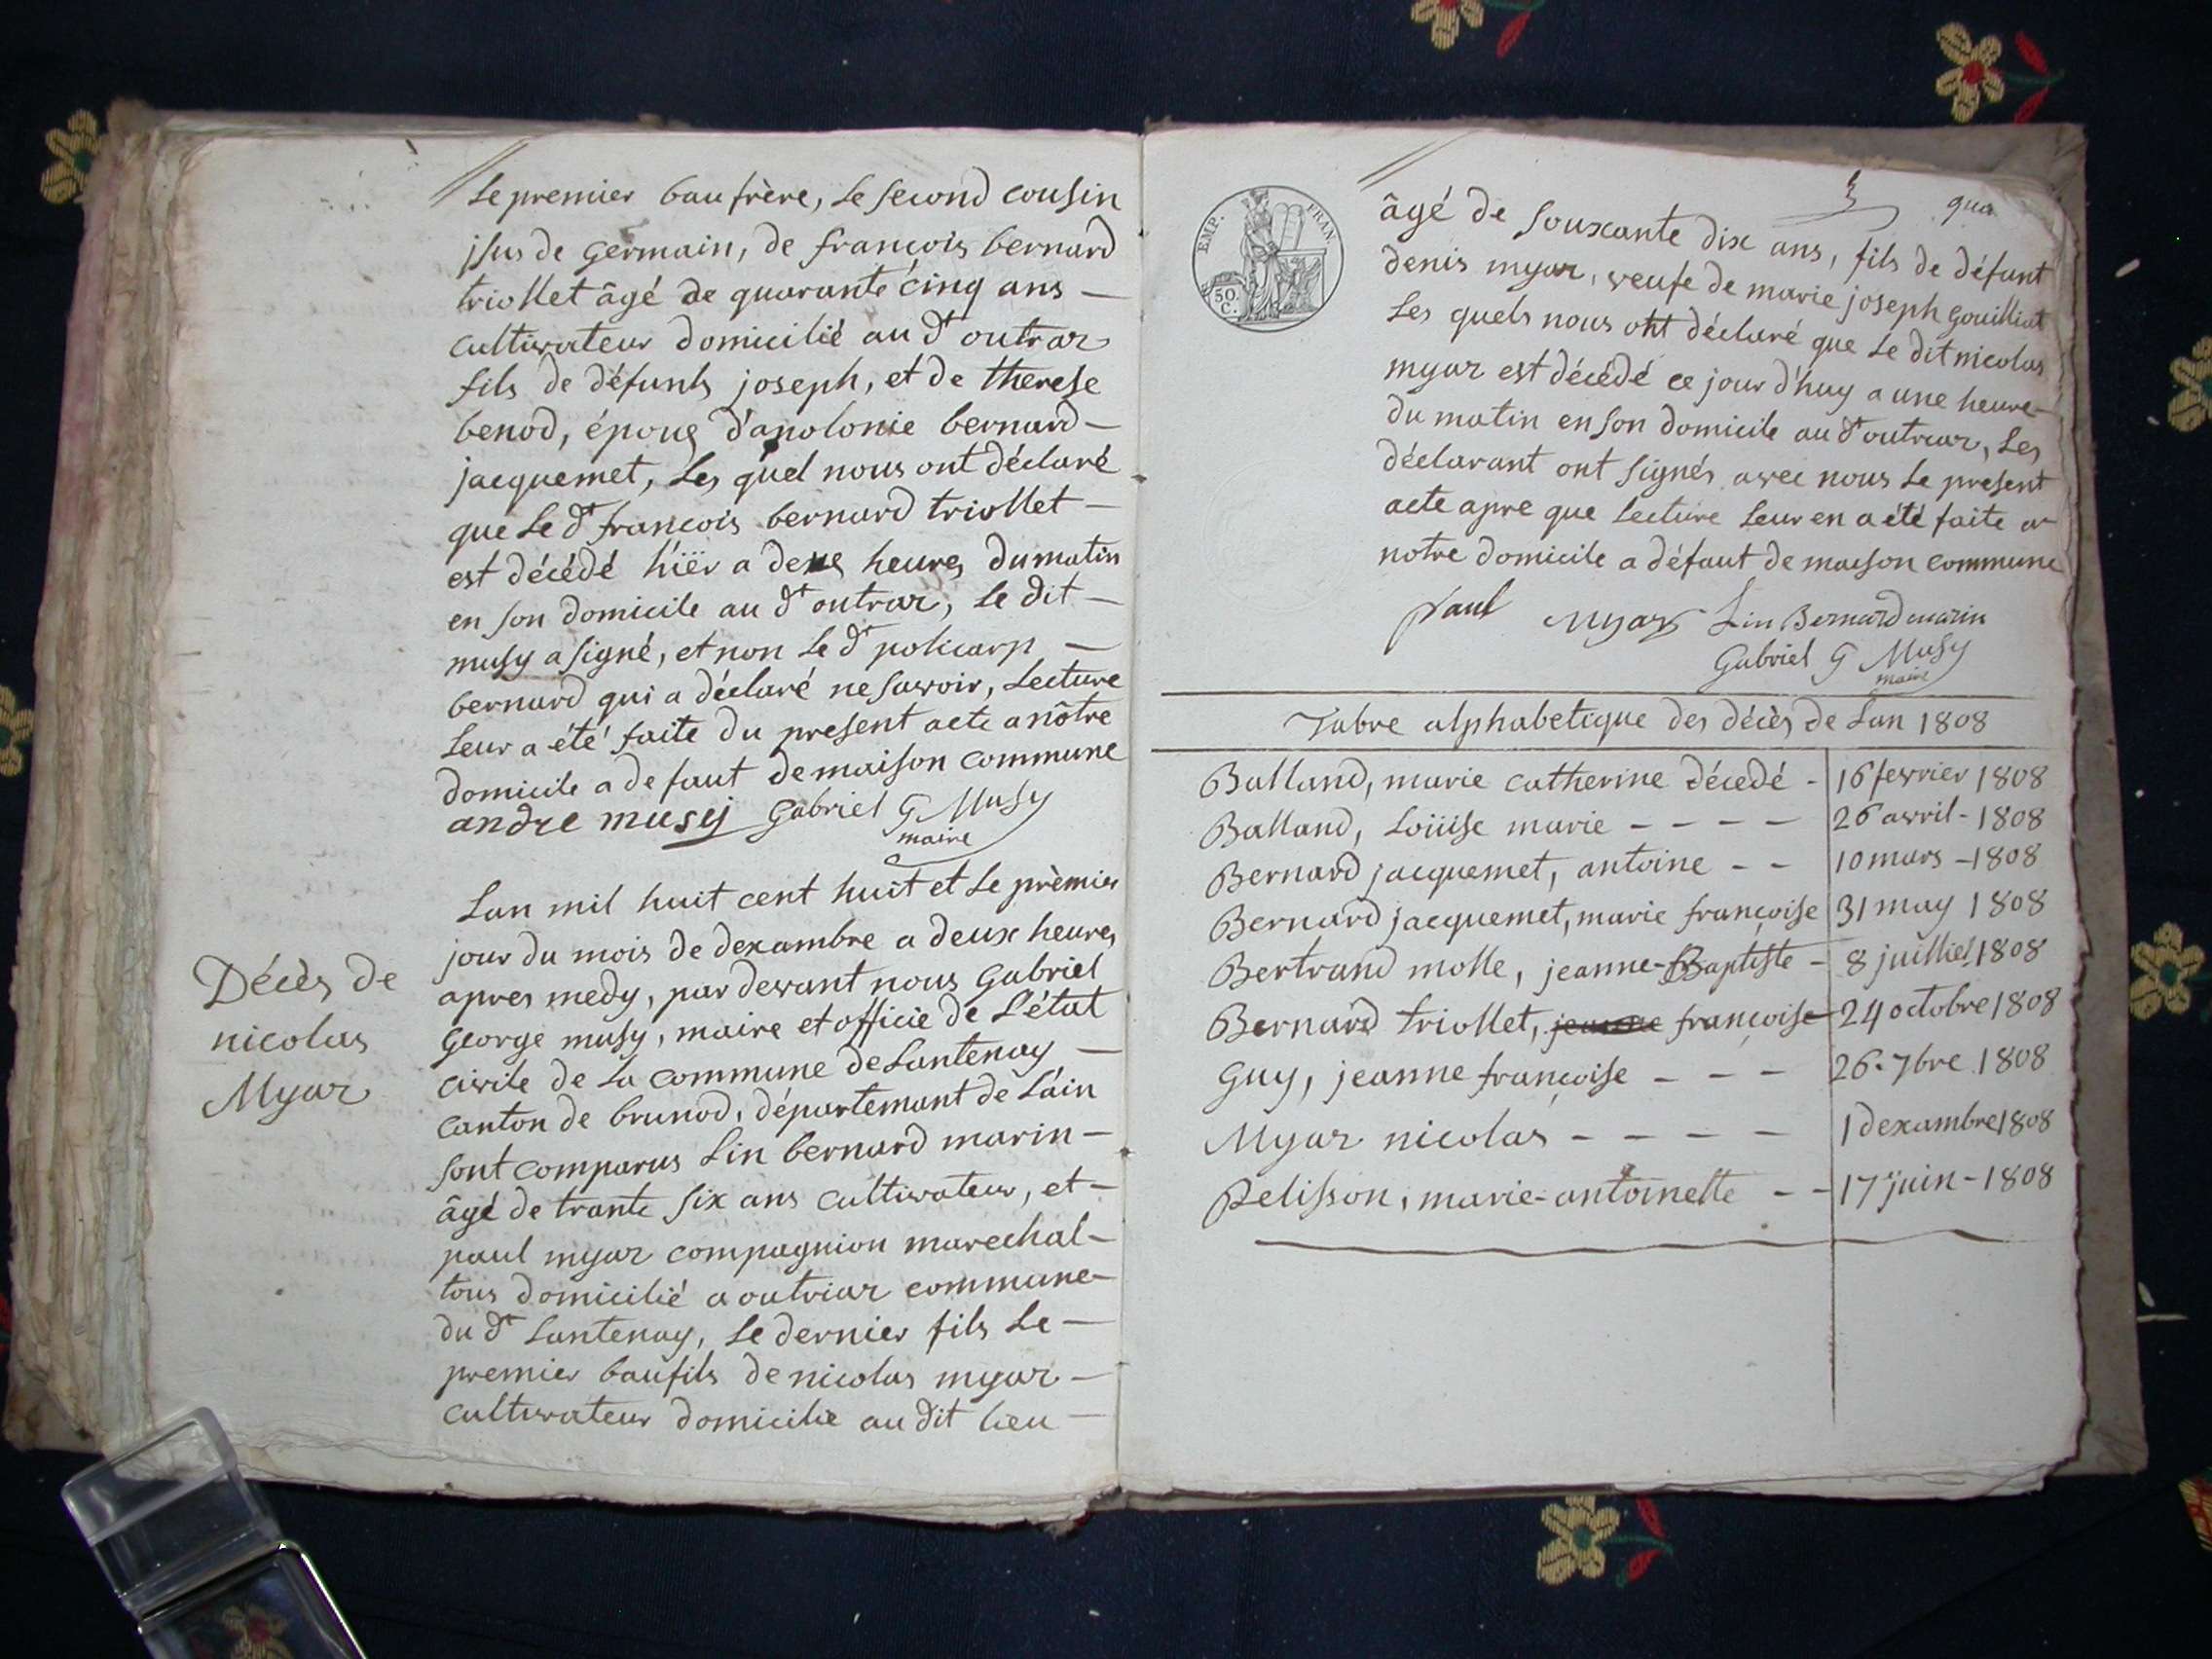 Le premier baufrère, le second cousin
jsus de germain, de francois bernard
triollet âgé de quarante cinq ans —
cultivateur domicilié au dt outrar
fils de défunts joseph, et de therese
benod, épous d'apolonie bernard —
jacquemet, les quel nous ont déclaré
que le dt francois bernard triollet —
est décédé hiër a deux heures du matin
en son domicile au dt outrar, le dit —
musy a signé, et non le dt policarp —
bernard qui a déclaré ne savoir, lecture
leur a été faite du present acte a nôtre
domicile a defaut de maison commune
andre musy Gabriel G Musy
maire
Décès de
nicolas
Myar
Lan mil huit cent huit et le prèmier
jour du mois de dexambre a deux heures
apres medy, par devant nous Gabriel
George musy, maire et officie de L'état
civile de la commune de Lantenay —
canton de brunod, département de L'ain
sont comparus Lin bernard marin —
âgé de trante six ans cultivateur, et —
paul myar compagnion marechal —
tous domicilié a outriar commune —
du dt Lantenay, le dernier fils le —
premier baufils de nicolas myar —
cultivateur domicilie au dit lieu —
EMP. FRAN.
50.
C.
qua
âgé de souxante dix ans, fils de défunt
denis myar, veufe de marie joseph Gouilliat
Les quels nous ont déclaré que le dit nicolas
myar est décédé ce jour d'huy a une heure —
du matin en son domicile au dt outriar, Les
déclarant ont signés avec nous le present
acte apre que lecture leur en a été faite a
notre domicile a défaut de maison commune
paul Myar Lin Bernard marin
Gabriel G Musy
maire
Tabre alphabetique des décès de Lan 1808
Balland, marie catherine décedé - 16 fevrier 1808
Balland, Loüise marie - - - - 26 avril - 1808
Bernard jacquemet, antoine - - 10 mars - 1808
Bernard jacquemet, marie françoise 31 may 1808
Bertrand molle, jeanne-Baptiste - 8 juilliet 1808
Bernard triollet, jeanne françoise 24 octobre 1808
Guy, jeanne françoise - - - 26. 7bre 1808
Myar nicolas - - - - 1 dexambre 1808
Pelisson, marie-antoinette - - 17 juin - 1808